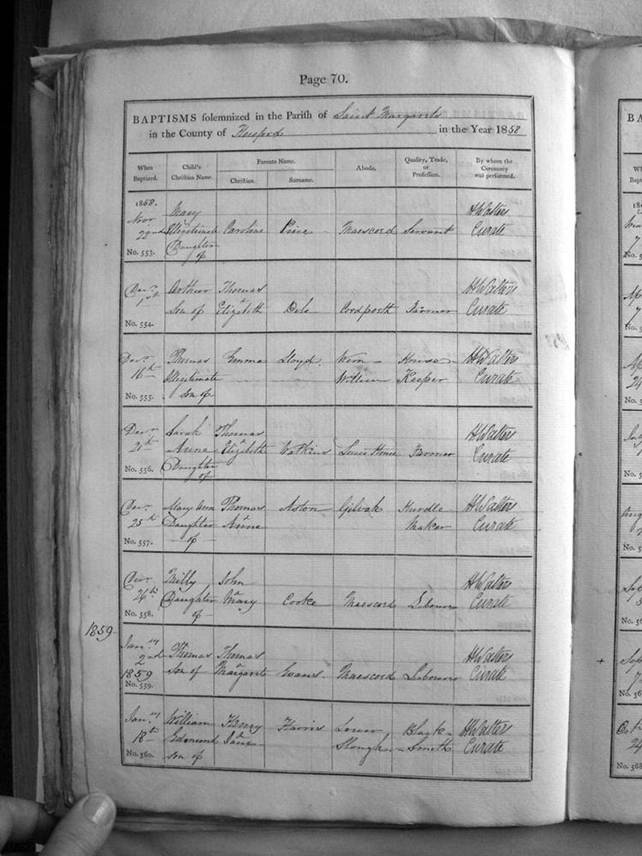 Page 70.
BAPTISMS solemnized in the Parish of Saint Margarets
in the County of Hereford in the Year 1858
When Baptized. Child's Christian Name. Parents Name. Christian. Surname. Abode. Quality, Trade, or Profession. By whom the Ceremony was performed.
1858. Novr 22nd Mary Illegitimate Daughter of Caroline Maescoed Servant HWalters Curate
No. 553.
Arthur Son of Thomas & Elizabeth Farmer HWalters Curate
No. 554.
Decr 16th Thomas Illegitimate son of Emma Lloyd House Keeper HWalters Curate
No. 555.
Decr Sarah Anne Daughter of Thomas & Elizabeth Watkins Farmer HWalters Curate
No. 556.
Decr 25th Mary Ann Daughter of Thomas & Anne Aston Gilvach Hurdle Maker HWalters Curate
No. 557.
Decr 26th Milly Daughter of John & Mary Cooke Maescoed Labourer HWalters Curate
No. 558.
1859
Jany 2nd 1859 Thomas Son of Thomas & Margarett Evans Maescoed Labourer HWalters Curate
No. 559.
Jany 18th William Edmund son of Henry & Jane Harris Lower Slough Black-Smith HWalters Curate
No. 560.